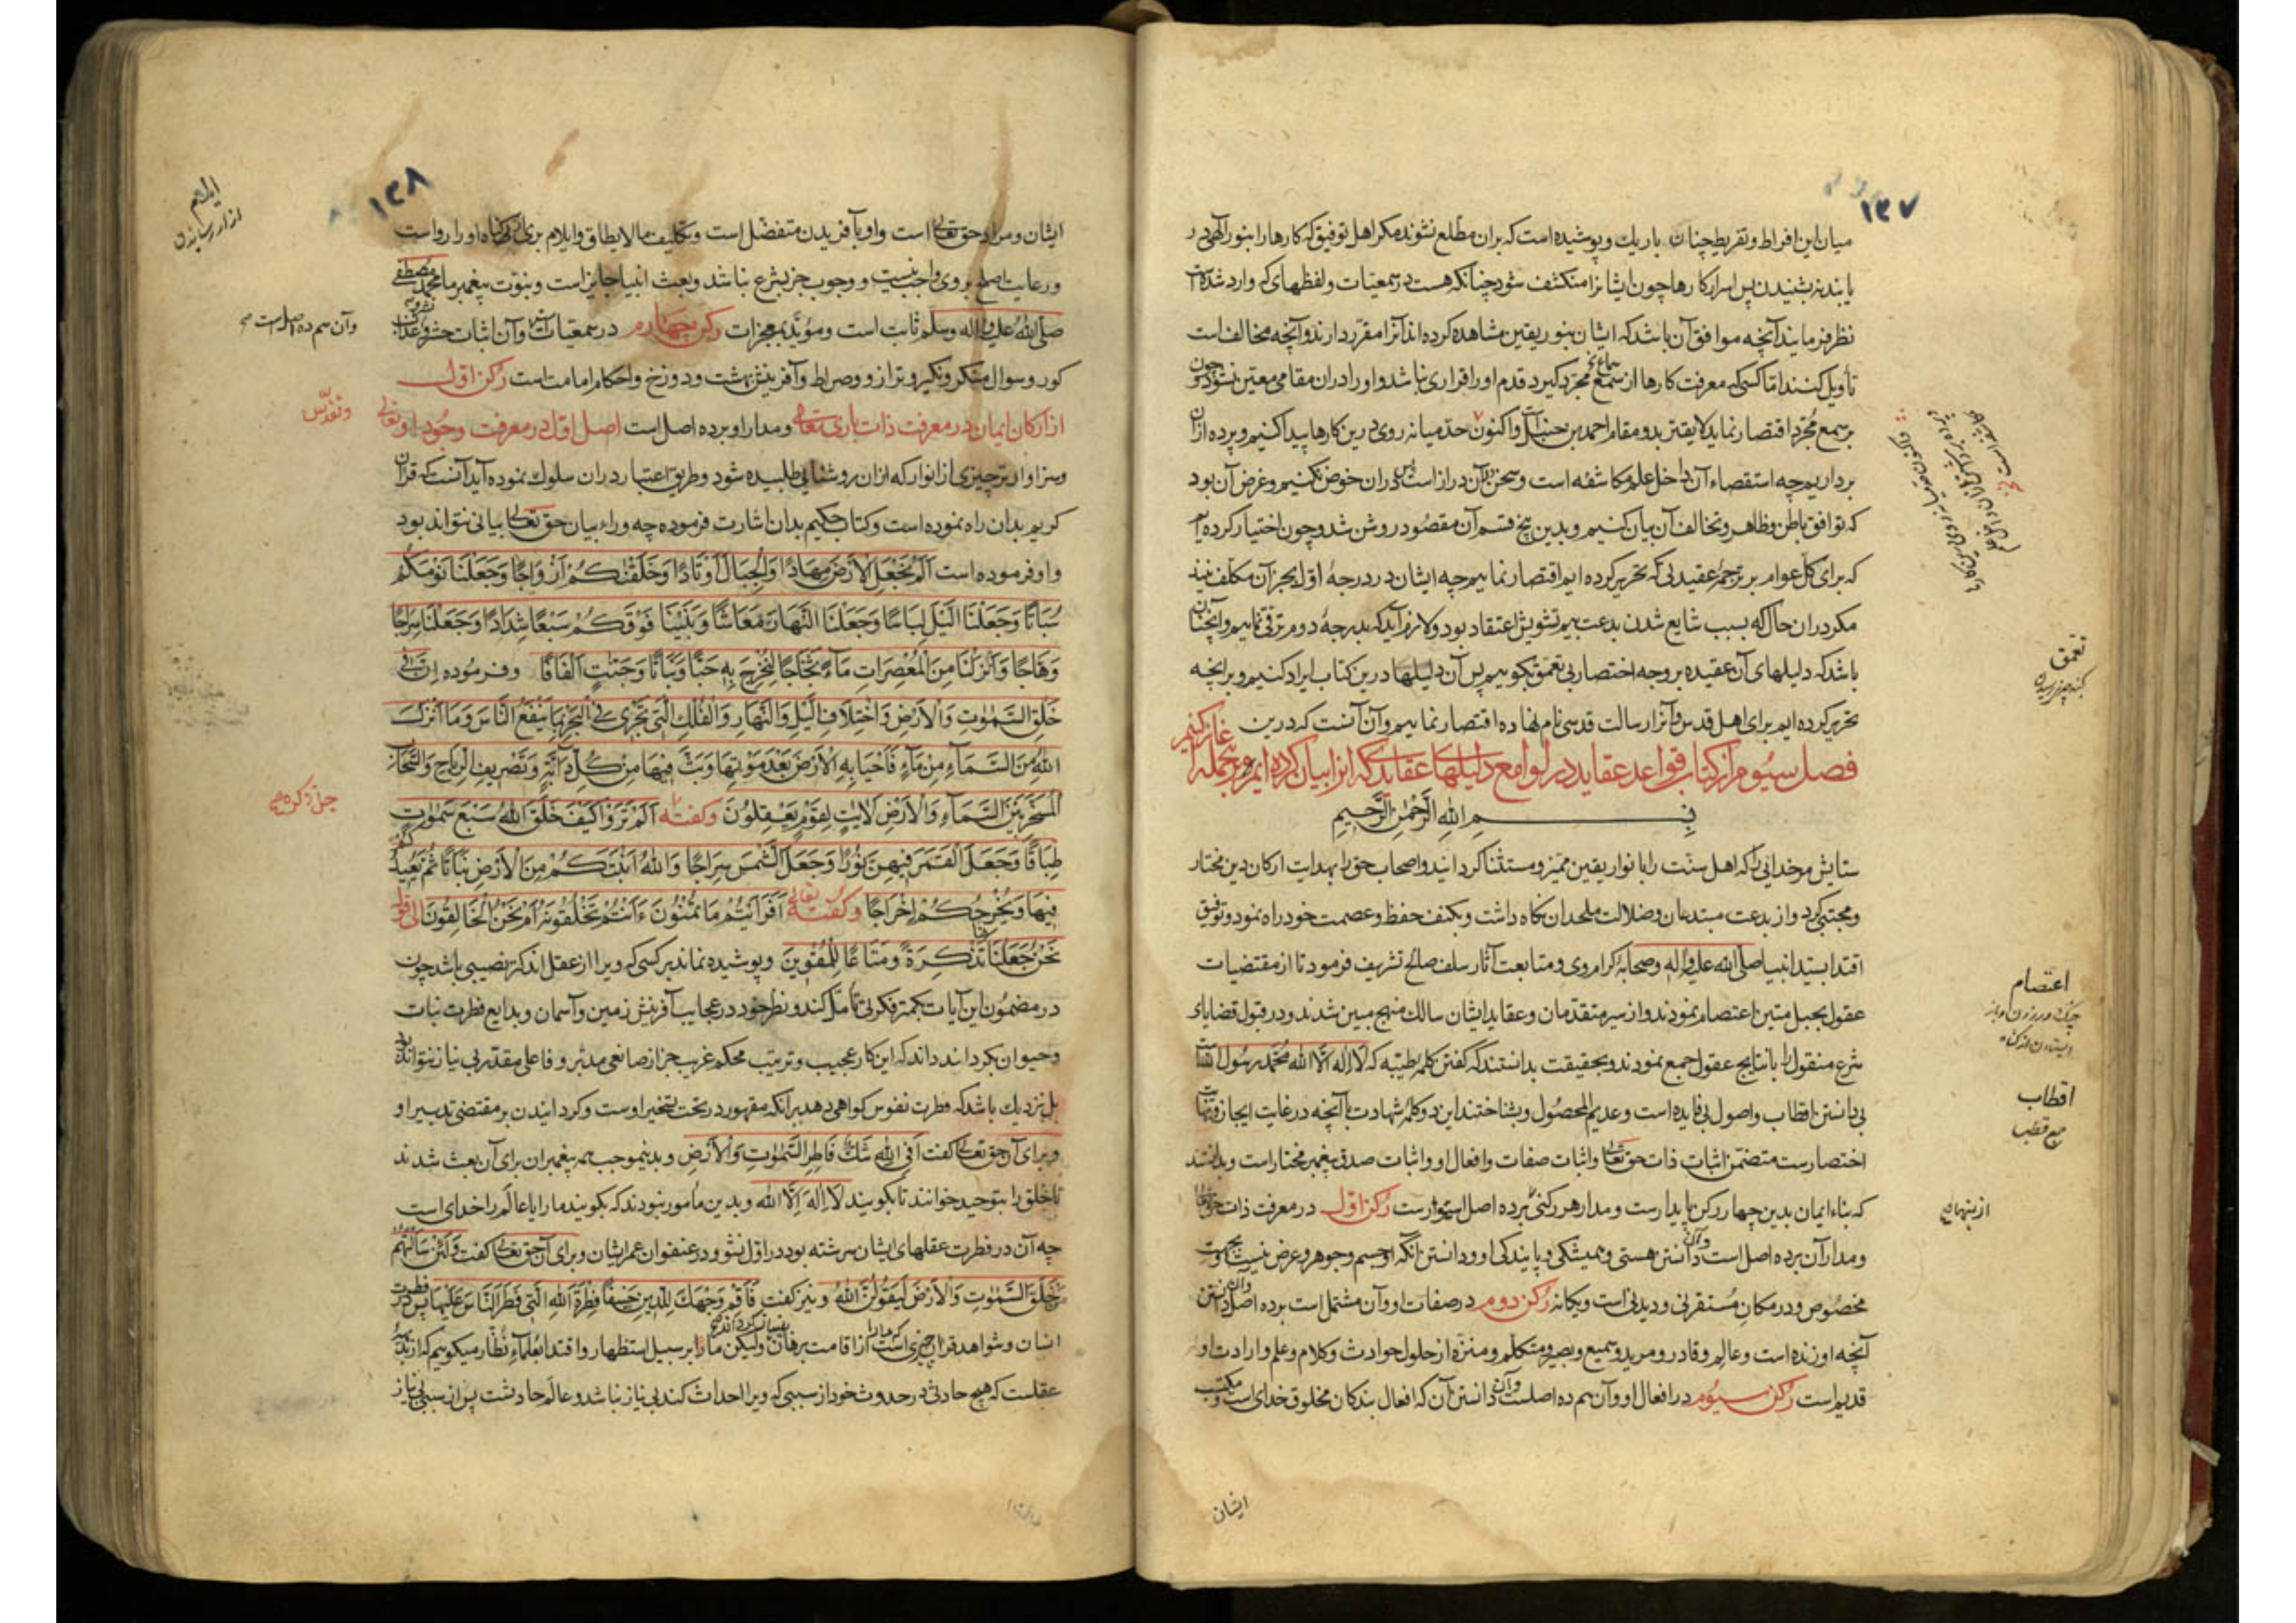 ۱۳۷
میان این افراط و تفریط چنان باریك و پوشیده است که بران مطلع نشوند مکر اهل توفیق که کارها را بنور الهی در
یابند نه بشنیدن پس اسرار کارها چون ایشانرا منکشف شود چنانکه هست در سمعیات و لفظهای که وارد شده است
نظر فرمایند آنچه موافق آن باشد که ایشان بنور یقین مشاهده کرده اند آنرا مقرر دارند و آنچه مخالف است
تأویل کنند اما کسی که معرفت کارها از سمع مجرد کیرد قدم او را قراری نباشد و او را دران مقامی معین نشود و چون
بر سمع مجرد اقتصار نماید لایقتر بدو مقام احمد بن حنبل است و اکنون حد میانه روی درین کارها پیدا کنیم و پرده ازان
برداریم چه استقصاء آن داخل علم مکاشفه است و سخن دران دراز است پس دران خوض نکنیم و غرض آن بود
که توافق باطن و ظاهر و تخالف آن بیان کنیم و بدین پنج قسم آن مقصود روشن شد و چون اختیار کرده ایم
که برای کل عوام بر ترجمهٔ عقیدتی که تحریر کرده ایم اقتصار نماییم چه ایشان در درجهٔ اول بجز آن مکلف نیند
مکر دران حال که بسبب شایع شدن بدعت بیم تشویش اعتقاد بود و لازم آید که بدرجهٔ دوم ترقی نماییم و آنچنان
باشد که دلیلهای آن عقیده بر وجه اختصار بی تعمق بکوییم پس آن دلیلها درین کتاب ایراد کنیم و برانچه
تحریر کرده ایم برای اهل قدس و آنرا رسالت قدسی نام نهاده اقتصار نماییم و آن آنست که درین
فصل سیوم از کتاب قواعد عقاید در لوامع دلیلهاء عقاید که انرا بیان کرده ایم و بجمله آغاز کنیم
بسم الله الرحمن الرحیم
ستایش مر خدایی را که اهل سنت را بانوار یقین ممیز و مستثنا کردانید و اصحاب حق را بهدایت ارکان دین مختار
و مجتبی کرد و از بدعت مبتدعان و ضلالت ملحدان نکاه داشت و بکنف حفظ و عصمت خود راه نمود و توفیق
اقتدا بسید انبیا صلی الله علیه و اله و صحابهٔ کرام وی و متابعت آثار سلف صالح تشریف فرمود تا از مقتضیات
عقول بحبل متین اعتصام نمودند و از سیر متقدمان و عقاید ایشان سالك منهج مبین شدند و در قبول قضایای
شرع منقول را با نتایج عقول جمع نمودند و بحقیقت بدانستند که کفتن کلمهٔ طیبه که لا اله الا الله محمد رسول الله
بی دانستن اقطاب و اصول بی فایده است و عدیم المحصول و بشناختند این دو کلمهٔ شهادت با آنچه در غایت ایجاز و نهایت
اختصارست متضمن اثبات ذات حق تعالی و اثبات صفات و افعال او و اثبات صدق پیغمبر مختار است و بدانستند
که بناء ایمان بدین چهار رکن پایدارست و مدار هر رکنی بر ده اصل استوارست رکن اول در معرفت ذات حق تعالی
و مدار آن بر ده اصل است و آن دانستن هستی و همیشکی و پایندکی او و دانستن آنکه او جسم و جوهر و عرض نیست و بجهت
مخصوص و در مکان مستقر نی و دیدنی است و یکانه رکن دوم در صفات او و آن مشتمل است بر ده اصل و آن دانستن
آنچه او زنده است و عالم و قادر و مرید و سمیع و بصیر و متکلم و منزه از حلول حوادث و کلام و علم و ارادت او
قدیم است رکن سیوم در افعال او و آن هم ده اصلست و آن دانستن آن که افعال بندکان مخلوق خدای است و مکتسب
ایشان
تعمق
اعتصام
چنك در زدن و باز
ایستادن از کناه
اقطاب
جمع قطب
۱۳۸
ایشان و مراد حق تعالی است و او بآفریدن متفضل است و تکلیف ما لا یطاق و ایلام بری از کناه او را رواست
و رعایت اصلح بر وی واجب نیست و وجوب جز بشرع نباشد و بعث انبیا جایز است و نبوت پیغمبر ما محمد مصطفی
صلی الله علیه و اله و سلم ثابت است و مؤید بمعجزات رکن چهارم در سمعیات و آن اثبات حشر و عذاب
کور و سوال منکر و نکیر و ترازو و صراط و آفرینش بهشت و دوزخ و احکام امامت است رکن اول
از ارکان ایمان در معرفت ذات باری تعالی و مدار او بر ده اصل است اصل اول در معرفت وجود او تعالی
وسزاوارتر چیزی از انوار که ازان روشنایی طلبیده شود و طریق اعتبار دران سلوك نموده آید آنست که قرآن
کریم بدان راه نموده است و کتاب حکیم بدان اشارت فرموده چه وراء بیان حق تعالی بیانی نتواند بود
و او فرموده است اَلَمْ نَجْعَلِ الْاَرْضَ مِهَادًا وَالْجِبَالَ اَوْتَادًا وَخَلَقْنَاكُمْ اَزْوَاجًا وَجَعَلْنَا نَوْمَكُمْ
سُبَاتًا وَجَعَلْنَا اللَّيْلَ لِبَاسًا وَجَعَلْنَا النَّهَارَ مَعَاشًا وَبَنَيْنَا فَوْقَكُمْ سَبْعًا شِدَادًا وَجَعَلْنَا سِرَاجًا
وَهَّاجًا وَاَنْزَلْنَا مِنَ الْمُعْصِرَاتِ مَاءً ثَجَّاجًا لِنُخْرِجَ بِهِ حَبًّا وَنَبَاتًا وَجَنَّاتٍ اَلْفَافًا و فرموده اِنَّ فِي
خَلْقِ السَّمٰوَاتِ وَالْاَرْضِ وَاخْتِلَافِ اللَّيْلِ وَالنَّهَارِ وَالْفُلْكِ الَّتِي تَجْرِي فِي الْبَحْرِ بِمَا يَنْفَعُ النَّاسَ وَمَا اَنْزَلَ
اللّٰهُ مِنَ السَّمَاءِ مِنْ مَاءٍ فَاَحْيَا بِهِ الْاَرْضَ بَعْدَ مَوْتِهَا وَبَثَّ فِيهَا مِنْ كُلِّ دَابَّةٍ وَتَصْرِيفِ الرِّيَاحِ وَالسَّحَابِ
الْمُسَخَّرِ بَيْنَ السَّمَاءِ وَالْاَرْضِ لَاٰيَاتٍ لِقَوْمٍ يَعْقِلُونَ و کفته اَلَمْ تَرَوْا كَيْفَ خَلَقَ اللّٰهُ سَبْعَ سَمٰوَاتٍ
طِبَاقًا وَجَعَلَ الْقَمَرَ فِيهِنَّ نُورًا وَجَعَلَ الشَّمْسَ سِرَاجًا وَاللّٰهُ اَنْبَتَكُمْ مِنَ الْاَرْضِ نَبَاتًا ثُمَّ يُعِيدُكُمْ
فِيهَا وَيُخْرِجُكُمْ اِخْرَاجًا و کفته تعالی اَفَرَاَيْتُمْ مَا تُمْنُونَ ءَاَنْتُمْ تَخْلُقُونَهُ اَمْ نَحْنُ الْخَالِقُونَ الی قوله
نَحْنُ جَعَلْنَاهَا تَذْكِرَةً وَمَتَاعًا لِلْمُقْوِينَ و پوشیده نماند بر کسی که ویرا از عقل اندك تر نصیبی باشد چون
در مضمون این آیات بکمتر فکرتی تأمل کند و نظر خود در عجایب آفرینش زمین و آسمان و بدایع فطرت نبات
و حیوان بکرداند داند که این کار عجیب و ترتیب محکم غریب جز از صانعی مدبر و فاعلی مقدر بی نیاز نتواند بود
بل نزدیك باشد که فطرت نفوس کواهی دهد برانکه مقهور در تحت تسخیر اوست و کردانیدن بر مقتضی تدبیر او
و برای آن حق تعالی کفت اَفِي اللّٰهِ شَكٌّ فَاطِرِ السَّمٰوَاتِ وَالْاَرْضِ و بدینموجب همه پیغمبران برای آن بعث شدند
تا خلق را بتوحید خوانند تا بکویند لا اله الا الله و بدین مامور نبودند که بکویند ما را یا عالم را خدای است
چه آن در فطرت عقلهای ایشان سرشته بود در اول نشو و در عنفوان عمر ایشان و برای آن حق تعالی کفت وَلَئِنْ سَاَلْتَهُمْ
مَنْ خَلَقَ السَّمٰوَاتِ وَالْاَرْضَ لَيَقُولُنَّ اللّٰهُ و نیز کفت فَاَقِمْ وَجْهَكَ لِلدِّينِ حَنِيفًا فِطْرَةَ اللّٰهِ الَّتِي فَطَرَ النَّاسَ عَلَيْهَا پس در فطرت
انسان و شواهد قران چیزی است که ما را از اقامت برهان بی نیاز کرداند ولیکن ما بر سبیل استظهار و اقتدا بعلماء نظار میکوییم که از بدیههٔ
عقلست که هیچ حادثی در حدوث خود از سببی که ویرا احداث کند بی نیاز نباشد و عالم حادثست پس از سببی بی نیاز
ایلام
ازار رسانیدن
وآن هم ده اصل است صح
وتقدس
جل ذکره